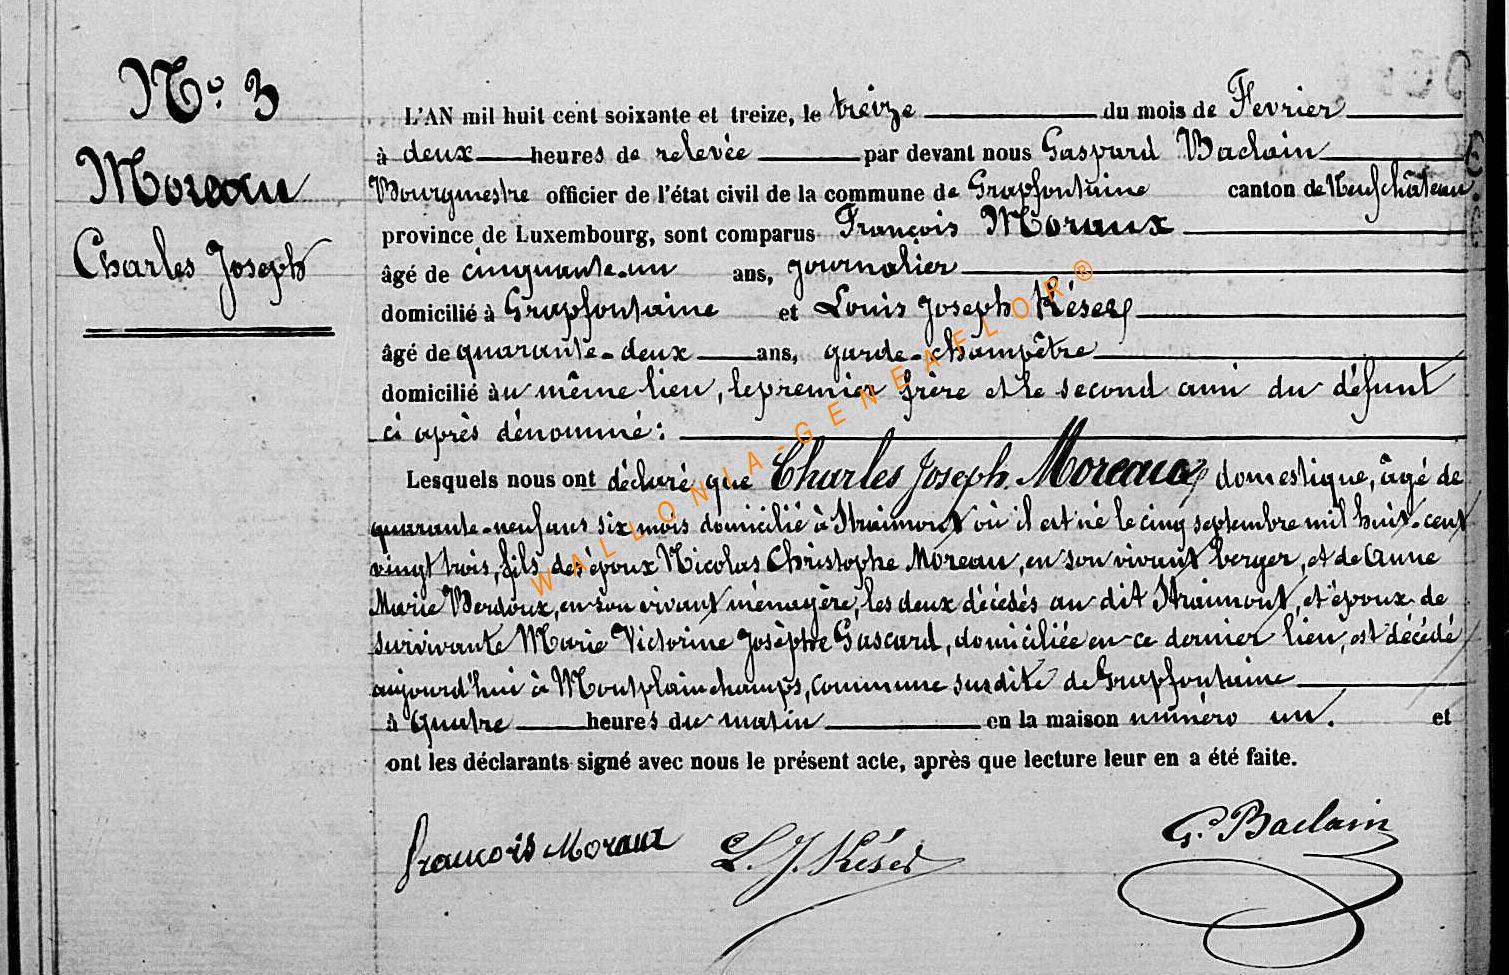 N° 3
Moreau
Charles Joseph
L'AN mil huit cent soixante et treize, le treize du mois de Fevrier
à deux heures de relevée par devant nous Gaspard Baclain
Bourgmestre officier de l'état civil de la commune de Grapfontaine canton de Neufchâteau
province de Luxembourg, sont comparus François Moraux
âgé de cinquante-un ans, journalier
domicilié à Grapfontaine et Louis Joseph Késer
âgé de quarante-deux ans, garde-champêtre
domicilié au même lieu, le premier frère et le second ami du défunt
ci après dénommé :
Lesquels nous ont déclaré que Charles Joseph Moreaux domestique, âgé de
quarante-neuf ans six mois domicilié à Straimont où il est né le cinq septembre mil huit-cent
vingt trois, fils des époux Nicolas Christophe Moreau, en son vivant berger, et de Anne
Marie Verdoux, en son vivant ménagère, les deux décédés au dit Straimont, et époux de
survivante Marie Victorine Josèphe Gascard, domiciliée en ce dernier lieu, est décédé
aujourd'hui à Montplainchamps, commune susdite de Grapfontaine
à Quatre heures du matin en la maison numéro un. et
ont les déclarants signé avec nous le présent acte, après que lecture leur en a été faite.
francois Moraux L. J. Késer G. Baclain
WALLONIA-GENEAFLOR®